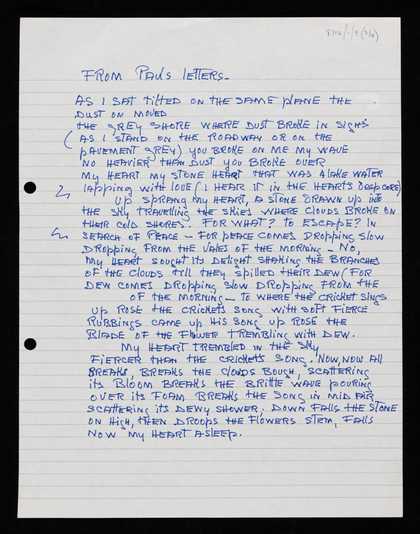 FROM PAUL'S LETTERS_
AS I SAT TILTED ON THE SAME PLANE THE
DUST ON MOVED
THE GREY SHORE WHERE DUST BROKE IN SIGHS
(AS I STAND ON THE ROADWAY OR ON THE
PAVEMENT GREY) YOU BROKE ON ME MY WAVE
NO HEAVIER THAN DUST YOU BROKE OVER
MY HEART MY STONE HEART THAT WAS A LAKE WATER
LAPPING WITH LOVE (I HEAR IT IN THE HEARTS DEEP CORE)
UP SPRANG MY HEART, A STONE DRAWN UP INTO
THE SKY TRAVELLING THE SKIES WHERE CLOUDS BROKE ON
THEIR COLD SHORES. FOR WHAT? TO ESCAPE? IN
SEARCH OF PEACE - FOR PEACE COMES DROPPING SLOW
DROPPING FROM THE VALES OF THE MORNING - NO,
MY HEART SOUGHT ITS DELIGHT SHAKING THE BRANCHES
OF THE CLOUDS TILL THEY SPILLED THEIR DEW (FOR
DEW COMES DROPPING SLOW DROPPING FROM THE
OF THE MORNING - TO WHERE THE CRICKET SINGS
UP ROSE THE CRICKETS SONG WITH SOFT FIERCE
RUBBINGS CAME UP HIS SONG UP ROSE THE
BLADE OF THE FLOWER TREMBLING WITH DEW.
MY HEART TREMBLED IN THE SKY
FIERCER THAN THE CRICKETS SONG. NOW, NOW ALL
BREAKS, BREAKS THE CLOUDS BOUGH, SCATTERING
ITS BLOOM BREAKS THE BRITTLE WAVE POURING
OVER ITS FOAM BREAKS THE SONG IN MID AIR
SCATTERING ITS DEWY SHOWER. DOWN FALLS THE STONE
ON HIGH, THEN DROPS THE FLOWERS STEM, FALLS
NOW MY HEART ASLEEP.